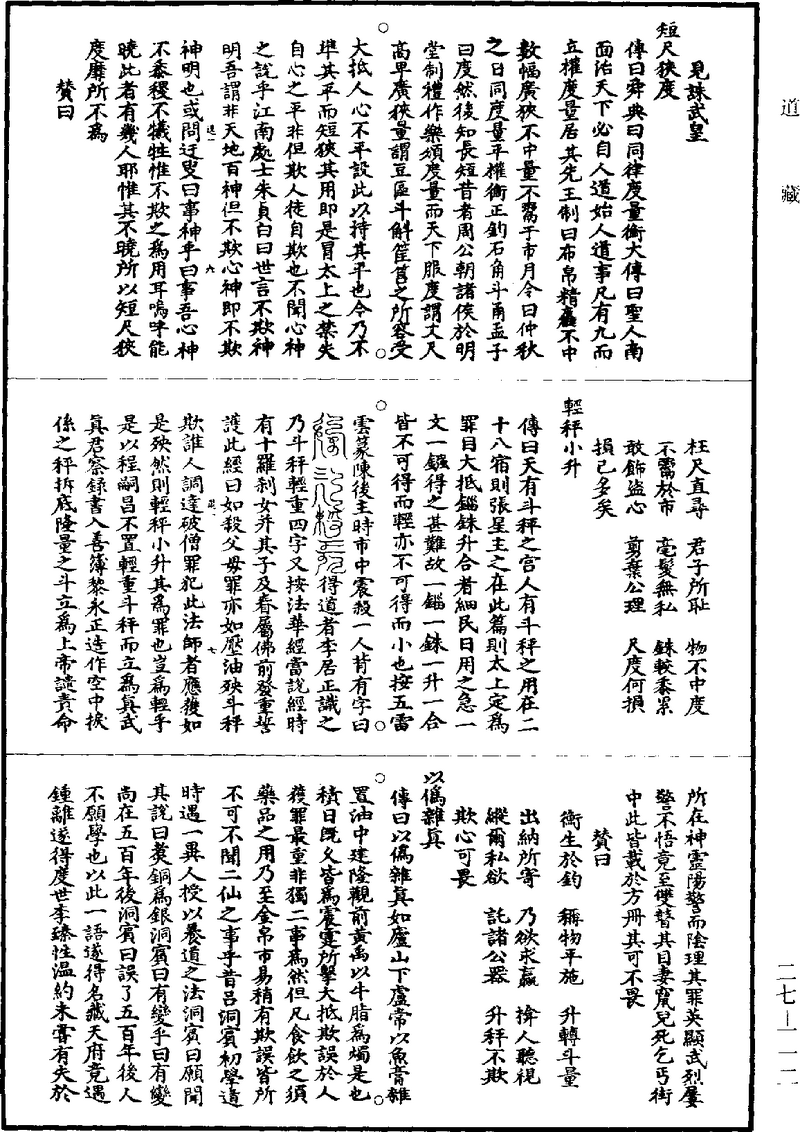 道藏
見誅武皇
短尺狹度
傳曰舜典曰同律度量衡大傳曰聖人南
面治天下必自人道始人道事凡有九而
立權度量居其先王制曰布帛精麤不中
數幅廣狹不中量不鬻于市月令曰仲秋
之日同度量平權衡正鈞石角斗甬孟子
曰度然後知長短昔者周公朝諸侯於明
堂制禮作樂頒度量而天下服度謂丈尺
高卑廣狹量謂豆區斗斛筐筥之所容受
大抵人心不平設此以持其平也今乃不
準其平而短狹其用即是冒太上之禁失
自心之平非但欺人徒自欺也不聞心神
之說乎江南處士朱貞白曰世言不欺神
明吾謂非天地百神但不欺心神即不欺
神明也或問迂叟曰事神乎曰事吾心神
不黍稷不犧牲惟不欺之為用耳嗚呼能
曉此者有幾人耶惟其不曉所以短尺狹
度靡所不為
贊曰
枉尺直尋　君子所恥　物不中度
不鬻於市　毫髮無私　銖較黍累
敢飾盜心　剪棄公理　尺度何損
損己多矣
輕秤小升
傳曰天有斗秤之宮人有斗秤之用在二
十八宿則張星主之在此篇則太上定為
罪目大抵錙銖升合者細民日用之急一
文一鏹得之甚難故一錙一銖一升一合
皆不可得而輕亦不可得而小也按五雷
雲篆陳後主時市中震殺一人背有字曰
得道者李居正識之
乃斗秤輕重四字又按法華經當說經時
有十羅剎女并其子及眷屬佛前發重誓
護此經曰如殺父母罪亦如壓油殃斗秤
欺誰人調達破僧罪犯此法師者應獲如
是殃然則輕秤小升其為罪也豈為輕乎
是以程嗣昌不置輕重斗秤而立為真武
真君察錄書入善簿黎永正造作空中挨
係之秤拆底隆量之斗立為上帝譴責命
所在神靈陽警而陰理其罪英顯武烈屢
警不悟竟至雙瞽其目妻竄兒死乞丐街
中此皆載於方冊其可不畏
贊曰
衡生於鈞　稱物平施　升轉斗量
出納所寄　乃欲求贏　揜人聽視
縱爾私欲　託諸公器　升秤不欺
欺心可畏
以偽雜真
傳曰以偽雜真如廬山下盧常以魚膏雜
置油中建隆觀前黃禹以牛脂為燭是也
積日既久皆為震霆所擊大抵欺誤於人
獲罪最重非獨二事為然但凡食飲之須
藥品之用乃至金帛市易稍有欺誤皆所
不可不聞二仙之事乎昔呂洞賓初學道
時遇一異人授以養道之法洞賓曰願聞
其說曰煑銅為銀洞賓曰有變乎曰有變
尚在五百年後洞賓曰誤了五百年後人
不願學也以此一語遂得名藏天府竟遇
鍾離遂得度世李臻性溫約未嘗有失於
二七—一一二